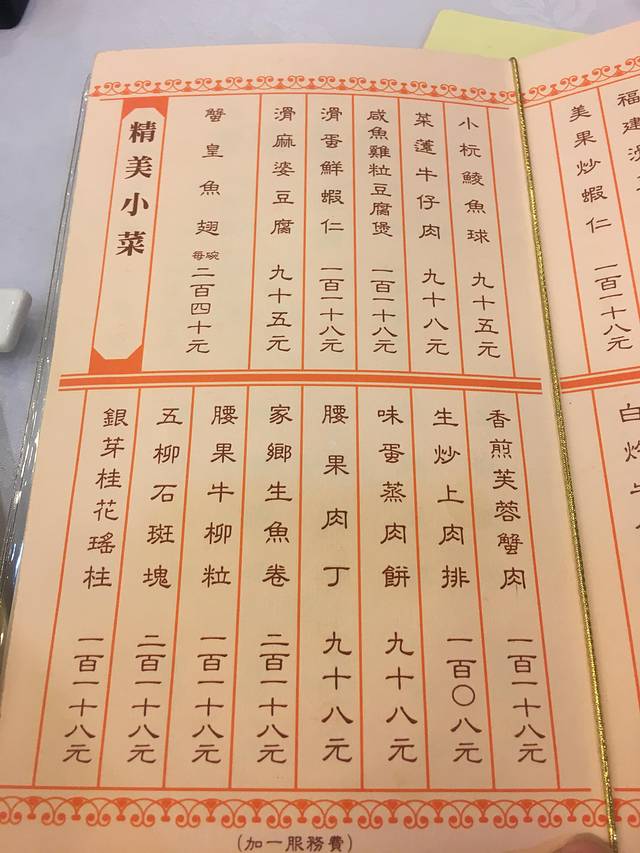 福建
美果炒蝦仁 一百一十八元
白灼
小杬鯪魚球 九十五元
菜薳牛仔肉 九十八元
咸魚雞粒豆腐煲 一百一十八元
滑蛋鮮蝦仁 一百一十八元
滑麻婆豆腐 九十五元
蟹皇魚翅 每碗二百四十元
精美小菜
香煎芙蓉蟹肉 一百一十八元
生炒上肉排 一百〇八元
味蛋蒸肉餅 九十八元
腰果肉丁 九十八元
家鄉生魚卷 二百一十八元
腰果牛柳粒 一百一十八元
五柳石斑塊 二百一十八元
銀芽桂花瑤柱 一百一十八元
(加一服務費)